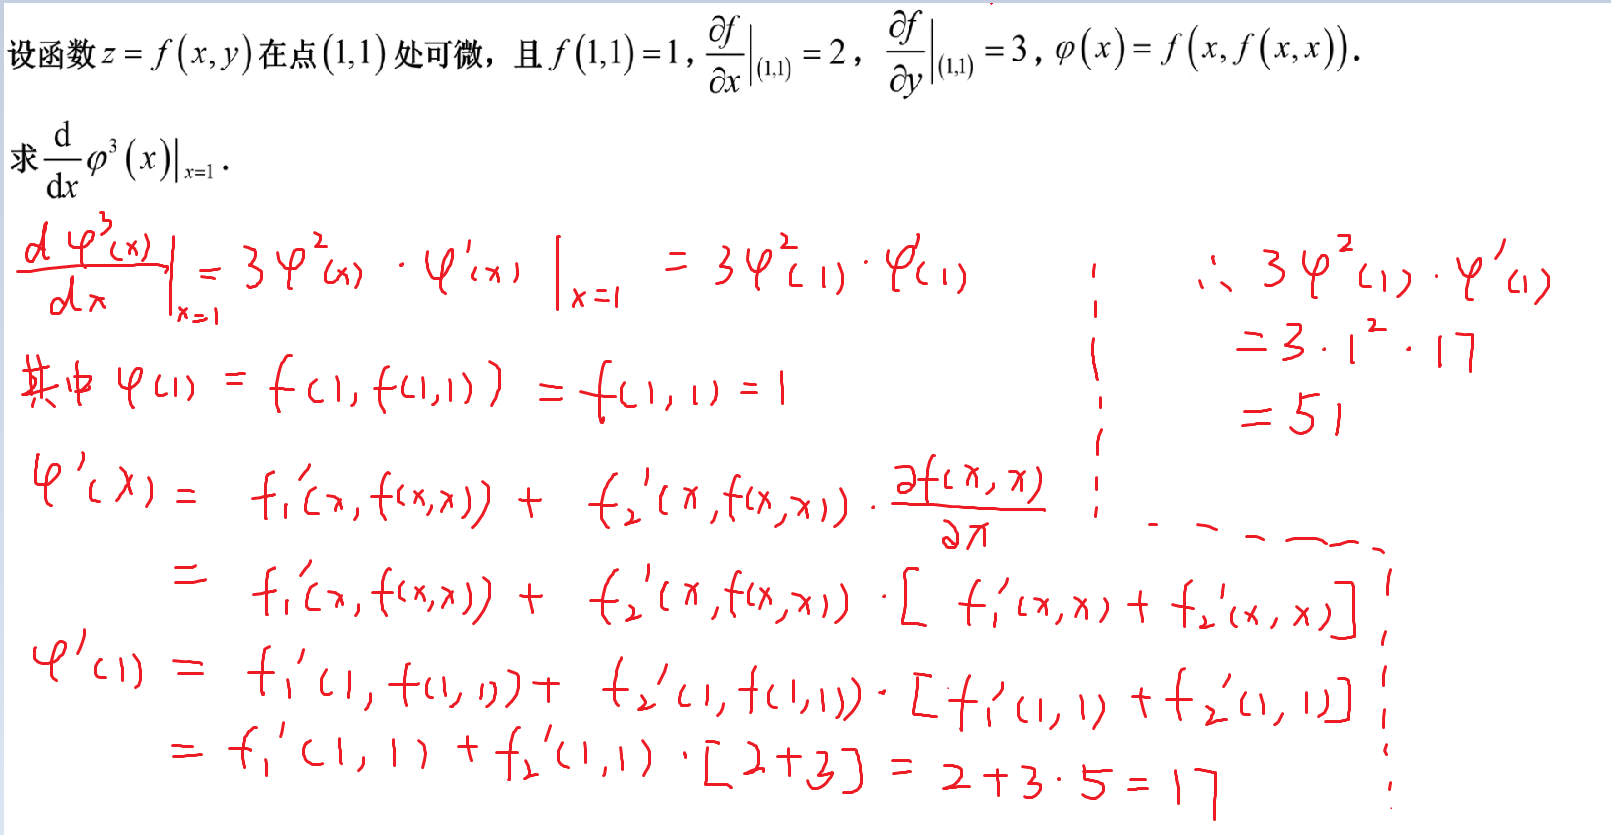 设函数 z = f(x,y) 在点(1,1) 处可微，且 f(1,1) = 1, ∂f/∂x|(1,1) = 2，∂f/∂y|(1,1) = 3, φ(x) = f(x, f(x,x)).
求 d/dx φ³(x)|x=1 .
dφ³(x)/dx |x=1 = 3φ²(x) · φ'(x) |x=1 = 3φ²(1) · φ'(1)
其中 φ(1) = f(1, f(1,1)) = f(1,1) = 1
φ'(x) = f₁'(x, f(x,x)) + f₂'(x, f(x,x)) · ∂f(x,x)/∂x
= f₁'(x, f(x,x)) + f₂'(x, f(x,x)) · [ f₁'(x,x) + f₂'(x,x)]
φ'(1) = f₁'(1, f(1,1)) + f₂'(1, f(1,1)) · [f₁'(1,1) + f₂'(1,1)]
= f₁'(1,1) + f₂'(1,1) · [2+3] = 2+3·5 = 17
∴ 3φ²(1) · φ'(1)
= 3 · 1² · 17
= 51